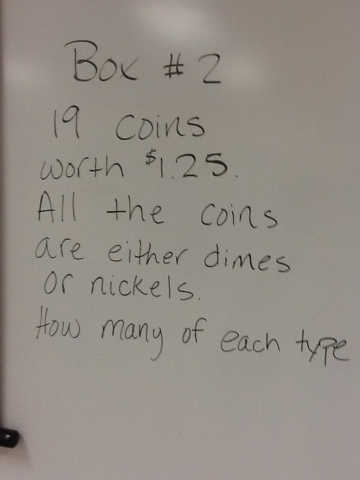 Box # 2
19 coins
worth $1.25.
All the coins
are either dimes
or nickels.
How many of each type